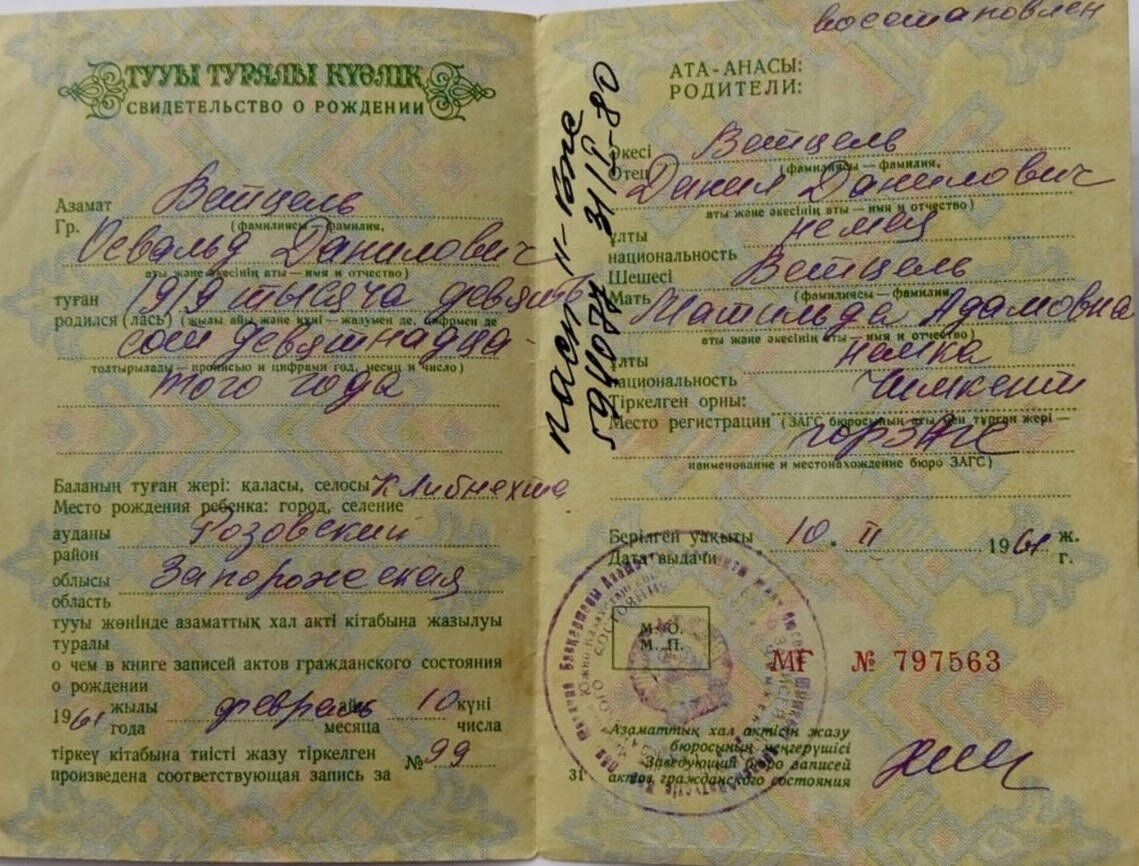 ТУУЫ ТУРАЛЫ КУӘЛІК
СВИДЕТЕЛЬСТВО О РОЖДЕНИИ
Азамат Ветцель
Гр. (фамилиясы — фамилия,
Освальд Данилович
аты және әкесінің аты — имя и отчество)
туған 1919 тысяча девять
родился (лась) (жылы айы және күні — жазумен де, цифрмен де
сот девятнадца-
толтырылады — прописью и цифрами год, месяц и число)
того года
Баланың туған жері: қаласы, селосы К Либнехта
Место рождения ребенка: город, селение
ауданы Розовский
район
облысы Запорожская
область
тууы жөнінде азаматтық хал акті кітабына жазылуы
туралы
о чем в книге записей актов гражданского состояния
о рождении
1961 жылы февраль айы 10 күні
года месяца числа
тіркеу кітабына тиісті жазу тіркелген №99
произведена соответствующая запись за
восстановлен
АТА-АНАСЫ:
РОДИТЕЛИ:
Әкесі Ветцель
Отец (фамилиясы — фамилия,
Данил Данилович
аты және әкесінің аты — имя и отчество)
ұлты немец
национальность
Шешесі Ветцель
Мать (фамилиясы — фамилия,
Матильда Адамовна
аты және әкесінің аты — имя и отчество)
ұлты немка
национальность
Тіркелген орны: Чимкент
Место регистрации (ЗАГС бюросының аты мен тұрған жері —
горЗАГС
наименование и местонахождение бюро ЗАГС)
Берілген уақыты 10. II 1961 ж.
Дата выдачи г.
М. О.
М. П.
МГ № 797563
Азаматтық хал актісін жазу
бюросының меңгерушісі
Заведующий бюро записей
актов гражданского состояния
31
пасп
594077